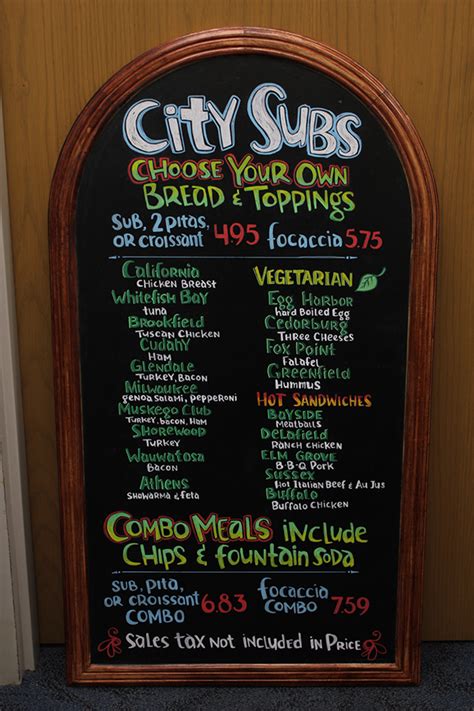 City Subs
Choose Your Own
Bread & Toppings
Sub, 2 pitas,
or croissant 4.95 focaccia 5.75
California
Chicken Breast
Whitefish Bay
tuna
Brookfield
Tuscan Chicken
Cudahy
Ham
Glendale
Turkey, Bacon
Milwaukee
genoa Salami, pepperoni
Muskego Club
Turkey, bacon, Ham
Shorewood
Turkey
Wauwatosa
Bacon
Athens
Showarma & feta
Vegetarian
Egg Harbor
hard Boiled Egg
Cedarburg
Three Cheeses
Fox Point
Falafel
Greenfield
Hummus
Hot Sandwiches
Bayside
Meatballs
Delafield
Ranch Chicken
Elm Grove
B-B-Q Pork
Sussex
Hot Italian Beef & Au Jus
Buffalo
Buffalo Chicken
Combo Meals include
Chips & fountain soda
Sub, pita,
or croissant 6.83
combo
focaccia
combo 7.59
Sales tax not included in Price